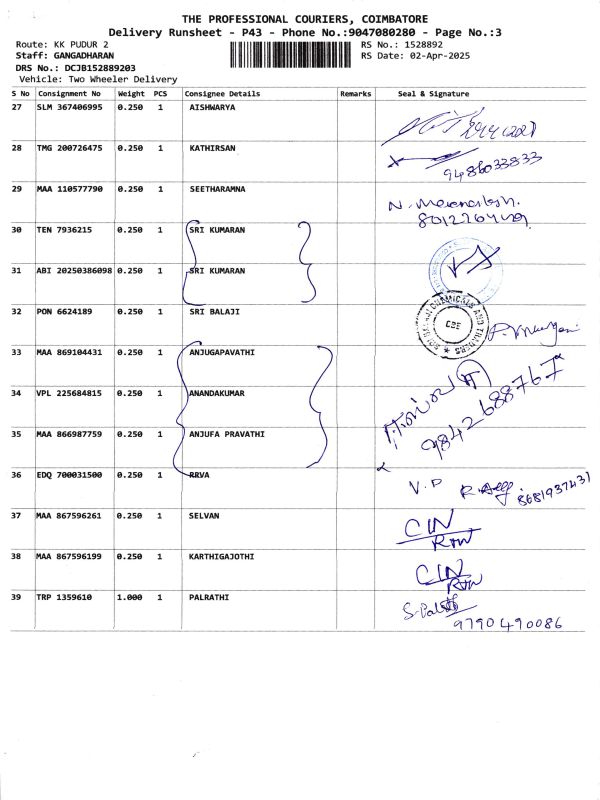 THE PROFESSIONAL COURIERS, COIMBATORE
Delivery Runsheet - P43 - Phone No.:9047080280 - Page No.:3
Route: KK PUDUR 2 RS No.: 1528892
Staff: GANGADHARAN RS Date: 02-Apr-2025
DRS No.: DCJB152889203
Vehicle: Two Wheeler Delivery
S No Consignment No Weight PCS Consignee Details Remarks Seal & Signature
27 SLM 367406995 0.250 1 AISHWARYA
28 TMG 200726475 0.250 1 KATHIRSAN
9486033833
29 MAA 110577790 0.250 1 SEETHARAMNA
N.
30 TEN 7936215 0.250 1 SRI KUMARAN
31 ABI 20250386098 0.250 1 SRI KUMARAN
32 PON 6624189 0.250 1 SRI BALAJI
SRI BALAJI CHEMICALS AND TRADERS
CBE
33 MAA 869104431 0.250 1 ANJUGAPAVATHI
34 VPL 225684815 0.250 1 ANANDAKUMAR
9842688767
35 MAA 866987759 0.250 1 ANJUFA PRAVATHI
36 EDQ 700031500 0.250 1 RRVA V.P
8681937431
37 MAA 867596261 0.250 1 SELVAN CIN
RTN
38 MAA 867596199 0.250 1 KARTHIGAJOTHI CIN
RTN
39 TRP 1359610 1.000 1 PALRATHI
9790490086